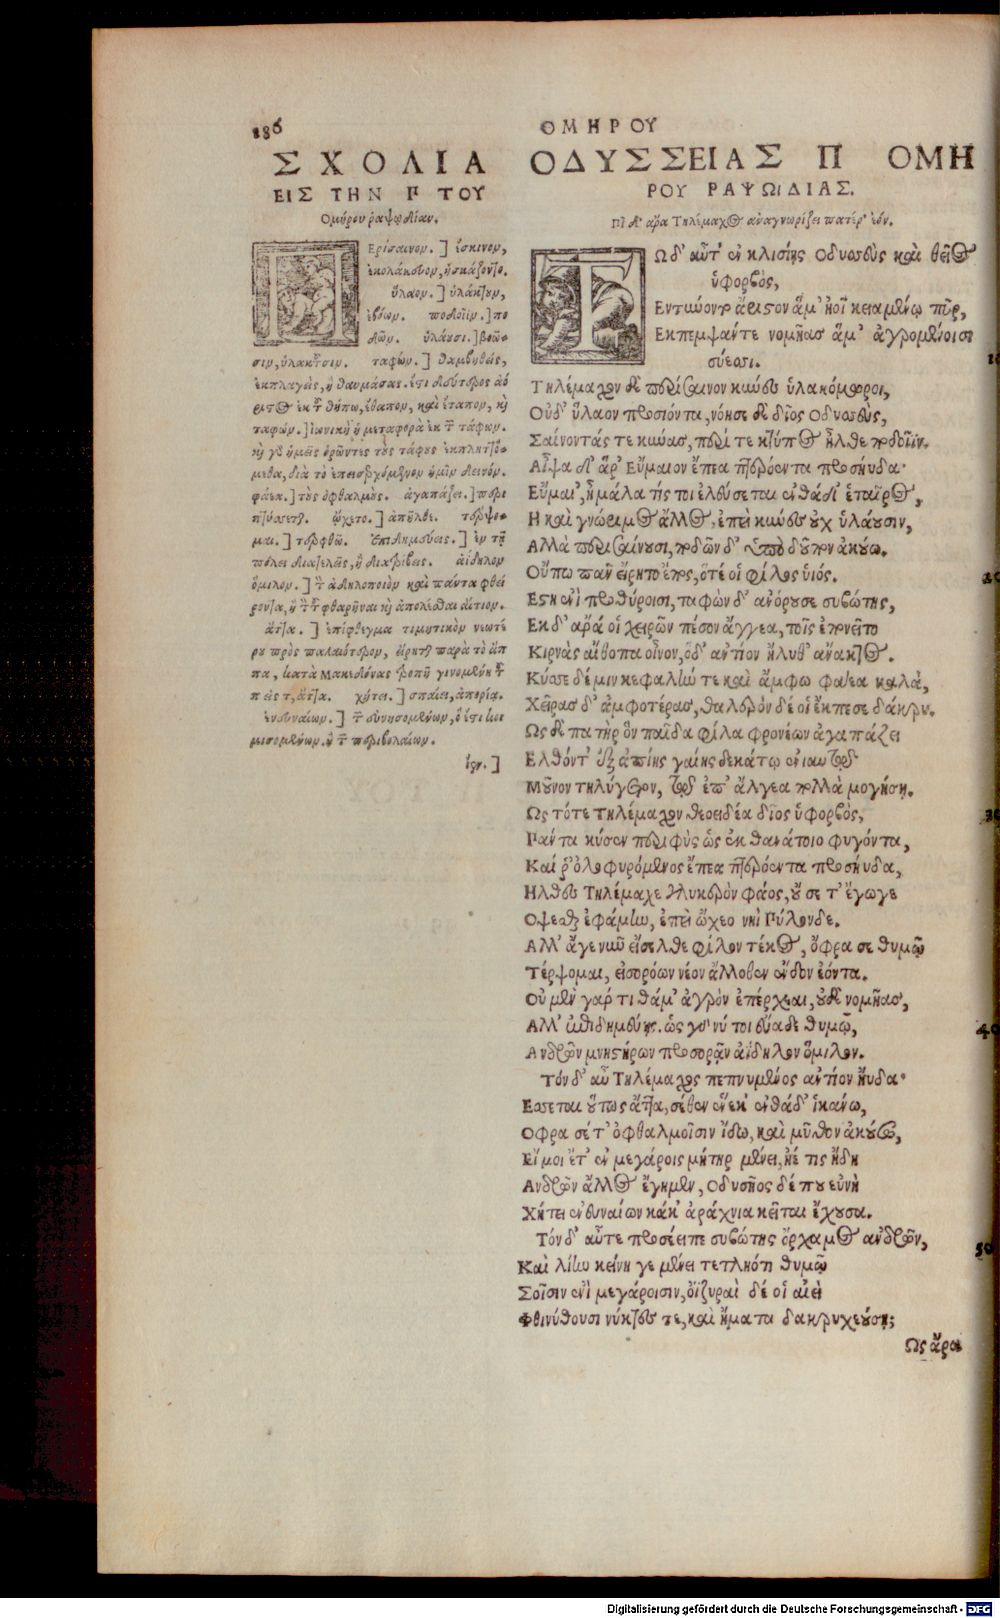 186
ΣΧΟΛΙΑ
ΕΙΣ ΤΗΝ Π ΤΟΥ
Ομήρου ῥαψωδίαν.
Περίσαινον.] ἔσαινον,
ἐκολάκευον, ἠσπάζοντο.
ὕλαον.] ὑλάκτουν,
ἐβόων. ποδοῖιν.] πο
δῶν. ὑλάουσι.] βοῶ-
σιν, ὑλακτοῦσιν. ταφών.] θαμβηθεὶς,
ἐκπλαγεὶς, ἢ θαυμάσας. ἔστι δεύτερος ἀό
ριστος ἐκ τοῦ θήπω, ἔθαπον, καὶ ἔταπον, κὴ
ταφών.] ἰωνικὴ ἡ μεταφορὰ ἐκ τῶν τάφων.
κὴ γὰρ ἡμεῖς ὁρῶντες τοὺς τάφους ἐκπληττό-
μεθα, διὰ τὸ ἐπεισερχόμενον ἡμῖν δεινόν.
φάεα.] τοὺς ὀφθαλμούς. ἀγαπάζει.] περι
πτύσσεται. ᾤχετο.] ἀπῆλθε. τέρψο-
μαι.] τερφθῶ. ἐπιδημεύεις.] ἐν τῇ
πόλει διατελεῖς, ἢ διατρίβεις. ἀΐδηλον
ὅμιλον.] τὸν ἀδηλοποιὸν καὶ πάντα φθεί
ροντα, ἢ τὸν τοῦ φθαρῆναι κὴ ἀπολέσθαι αἴτιον.
ἄττα.] ἐπίφθεγμα τιμητικὸν νεωτέ
ρου πρὸς παλαιότερον, εἴρηται παρὰ τὸ ἄπ
πα, κατὰ Μακεδόνας τροπῇ γινομένη τοῦ
π εἰς τ, ἄττα. χήτει.] σπάνει, ἀπορίᾳ.
ἐνευναίων.] τῶν συνησομένων, ὅ ἐστι κοι
μισομένων. ἢ τῶν περιβολαίων.
ἶσν.]
ΟΜΗΡΟΥ
ΟΔΥΣΣΕΙΑΣ Π ΟΜΗ
ΡΟΥ ΡΑΨΩΙΔΙΑΣ.
Πῖ δ' ἄρα Τηλέμαχος ἀναγνωρίζει πατέρ' ἑόν.
ΤΩ δ' αὖτ' ἐν κλισίῃς Οδυσεὺς καὶ θεῖος
ὑφορβὸς,
Εντύνοντ' ἄριστον ἅμ' ἠοῖ κειαμένω πῦρ,
Εκπεμψάντε νομῆας ἅμ' ἀγρομένοισι
σύεσσι.
Τηλέμαχον δὲ περίσαινον κύνες ὑλακόμωροι,
Οὐδ' ὕλαον προσιόντα, νόησε δὲ δῖος Οδυσεὺς,
Σαίνοντάς τε κύνας, περί τε κτύπος ἦλθε ποδοῖϊν.
Αἶψα δ' ἄρ' Εὔμαιον ἔπεα πτερόεντα προσηύδα·
Εὔμαι', ἦ μάλα τίς τοι ἐλεύσεται ἐνθάδ' ἑταῖρος,
Η καὶ γνώριμος ἄλλος, ἐπεὶ κύνες οὐχ ὑλάουσιν,
Αλλὰ περισσαίνουσι, ποδῶν δ' ὑπὸ δοῦπον ἀκούω.
Οὔπω πᾶν εἴρητο ἔπος, ὅτέ οἱ φίλος υἱός.
Εστη ἐνὶ προθύροισι, ταφὼν δ' ἀνόρουσε συβώτης,
Εκ δ' ἄρά οἱ χειρῶν πέσον ἄγγεα, τοῖς ἐπονεῖτο
Κιρνὰς αἴθοπα οἶνον, ὁδ' ἀντίον ἤλυθ' ἄνακτος.
Κύσσε δέ μιν κεφαλήν τε καὶ ἄμφω φάεα καλὰ,
Χεῖρας δ' ἀμφοτέρας, θαλερὸν δέ οἱ ἔκπεσε δάκρυ.
Ως δὲ πατὴρ ὃν παῖδα φίλα φρονέων ἀγαπάζει
Ελθόντ' ἐξ ἀπίης γαίης δεκάτῳ ἐνιαυτῷ
Μοῦνον τηλύγετον, τῷ ἐπ' ἄλγεα πολλὰ μογήσῃ.
Ως τότε Τηλέμαχον θεοειδέα δῖος ὑφορβὸς,
Πάντα κύσεν περιφὺς ὡς ἐκ θανάτοιο φυγόντα,
Καί ῥ' ὀλοφυρόμενος ἔπεα πτερόεντα προσηύδα,
Ηλθες Τηλέμαχε γλυκερὸν φάος, οὔ σε τ' ἔγωγε
Οψεσθαι ἐφάμην, ἐπεὶ ᾤχεο νηῒ Πύλονδε.
Αλλ' ἄγε νῦν εἴσελθε φίλον τέκος, ὄφρα σε θυμῷ
Τέρψομαι, εἰσορόων νέον ἄλλοθεν ἔνδον ἐόντα.
Οὐ μὲν γάρ τι θάμ' ἀγρὸν ἐπέρχεαι, οὐδὲ νομῆας,
Αλλ' ἐπιδημεύεις. ὡς γάρ νύ τοι εὔαδε θυμῷ,
Ανδρῶν μνηστήρων προσορᾶν ἀΐδηλον ὅμιλον.
Τόν δ' αὖ Τηλέμαχος πεπνυμένος ἀντίον ηὔδα·
Εσσεται οὕτως ἄττα, σέθεν ἕνεκ' ἐνθάδ' ἱκάνω,
Οφρα σέ τ' ὀφθαλμοῖσιν ἴδω, καὶ μῦθον ἀκούσω,
Εἴ μοι ἔτ' ἐν μεγάροις μήτηρ μένει, ἠέ τις ἤδη
Ανδρῶν ἄλλος ἔγημεν, Οδυσῆος δέ που εὐνὴ
Χήτει ἐνευναίων κάκ' ἀράχνια κεῖται ἔχουσα.
Τόν δ' αὖτε προσέειπε συβώτης ὄρχαμος ἀνδρῶν,
Καὶ λίην κείνη γε μένει τετληότι θυμῷ
Σοῖσιν ἐνὶ μεγάροισιν, ὀϊζυραὶ δέ οἱ αἰεὶ
Φθινύθουσι νύκτες τε, καὶ ἤματα δακρυχεούσῃ;
Ως ἄρα
10
20
30
40
50
Digitalisierung gefördert durch die Deutsche Forschungsgemeinschaft - DFG